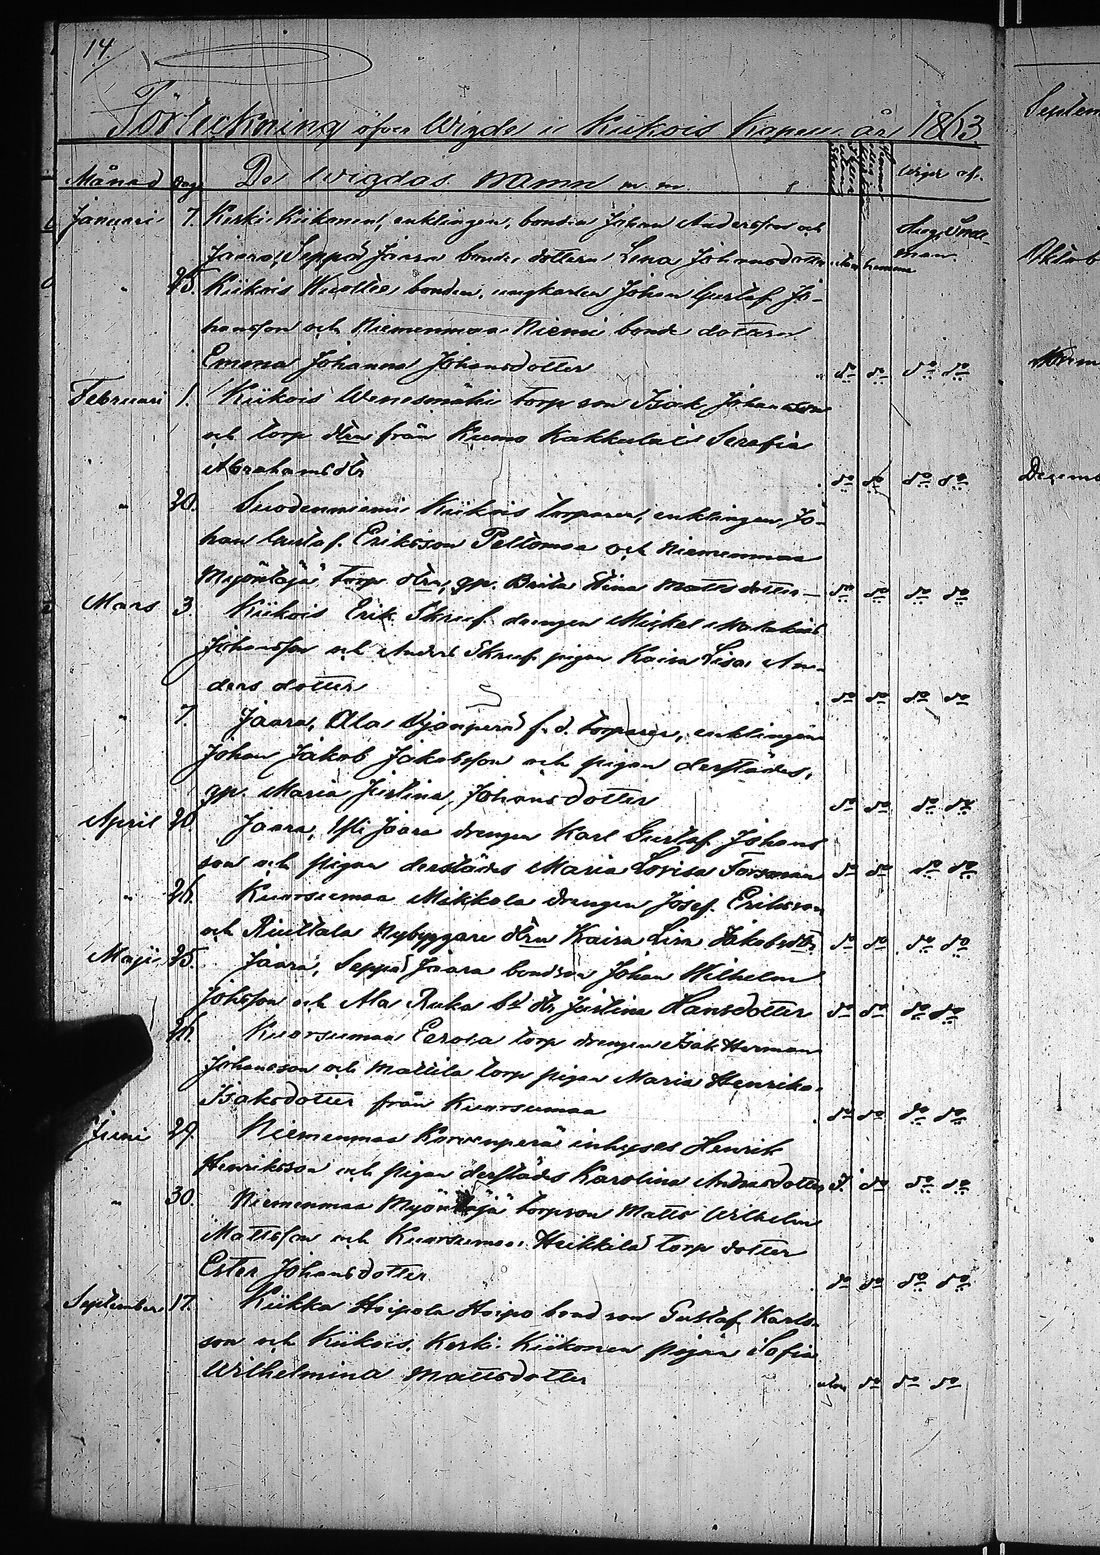 14.
Förteckning öfver Wigde i Kiikois Kapell år 1863.
Månad Dag De wigdas namn m. m. Wigd af.
Januari 7. Keski Kiikonen, enklingen, bonden Johan Andersson och Aug. Sade-
Jaara, Seppä Jaara bonde dottern Lena Johansdotter utan hemma man
" 25. Kiikois bonden, ungkarlen Johan Gustaf Jo-
hansson och Niemenmaa Niemi bonde dottern
Emma Johanna Johansdotter do do do do
Februari 1. Kiikois Wenesmäki torp son Isak Johansson
och torp dtrn från Kumo Kakkulai Serafia
Abrahamsdtr do do do do
" 20. Suodenniemi Kiikois torparen, enklingen, Jo-
han Gustaf Eriksson Peltomaa och Niemenmaa
Myöntäjä torp dtrn, qp. Brita Stina Mattsdotter do do do do
Mars 3. Kiikois Erik Skref drengen Mickel Malakias
Johansson och Anders Skref pigan Kaisa Lisa An-
ders dotter do do do do
" 7. Jaara, Ala f. d. torparen, enklingen
Johan Jakob Jakobsson och pigan derstädes,
qp. Maria Justina Johansdotter do do do do
April 20 Jaara, Yli Jaara drengen Karl Gustaf Johans
son och pigan derstädes Maria Lovisa do do do do
" 26. Kuorsumaa Mikkola drengen Josef Eriksson
och Riuttala Nybyggare dtrn Kaisa Lisa Jakobsdtr do do do do
Maji 25. Jaara, Seppä Jaara bondson Johan Wilhelm
Johsson och Ala Ruka bd dtr Justina Hansdotter do do do do
26. Kuorsumaa Eerola torp drengen Isak Herman
Johansson och Mattila torp pigan Maria Henrika
Isaksdotter från Kuorsumaa do do do do
Juni 29. Niemenmaa Korvenperä inhyses Henrik
Henriksson och pigan derstädes Karolina Andersdotter do do do
" 30. Niemenmaa Myöntäjä torpson Matts Wilhelm
Mattsson och Kuorsumaa Heikkilä torp dotter
Ester Johansdotter do do do do
September 17. Kiikka Hoipola Hoipo bond son Gustaf Karls-
son och Kiikois, Keski Kiikonen pigan Sofia
Wilhelmina Mattsdotter utan do do do
Septem
Oktob
Decemb